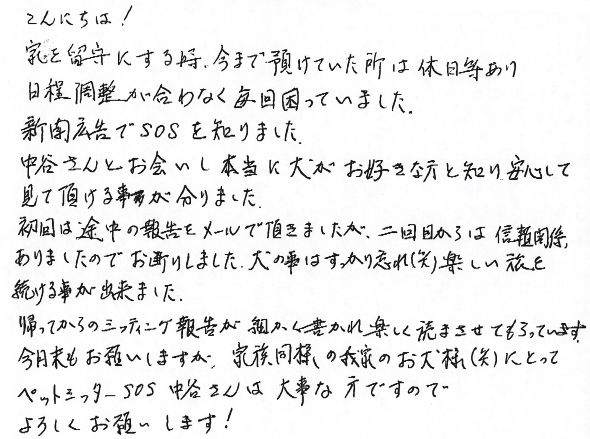 こんにちは！
家を留守にする時、今まで預けていた所は休日等あり
日程調整が合わなく毎回困っていました。
新聞広告でSOSを知りました。
中谷さんとお会いし本当に犬がお好きな方と知り安心して
見て頂ける事が分りました。
初回は途中の報告をメールで頂きましたが、二回目からは信頼関係
ありましたのでお断りしました。犬の事はすっかり忘れ(笑)楽しい旅を
続ける事が出来ました。
帰ってからのシッティング報告が細かく書かれ楽しく読まさせてもらっています。
今月末もお願いしますが、家族同様の我家のお犬様(笑)にとって
ペットシッターSOS中谷さんは大事な方ですので
よろしくお願いします！